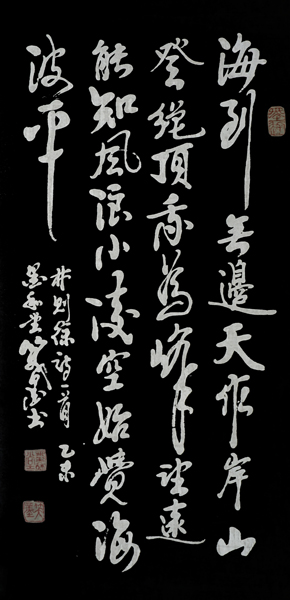 海到無邊天作岸山
登絕頂我為峰望遠
能知風浪小凌空始覺海
波平
林則徐詩一首 乙未
書